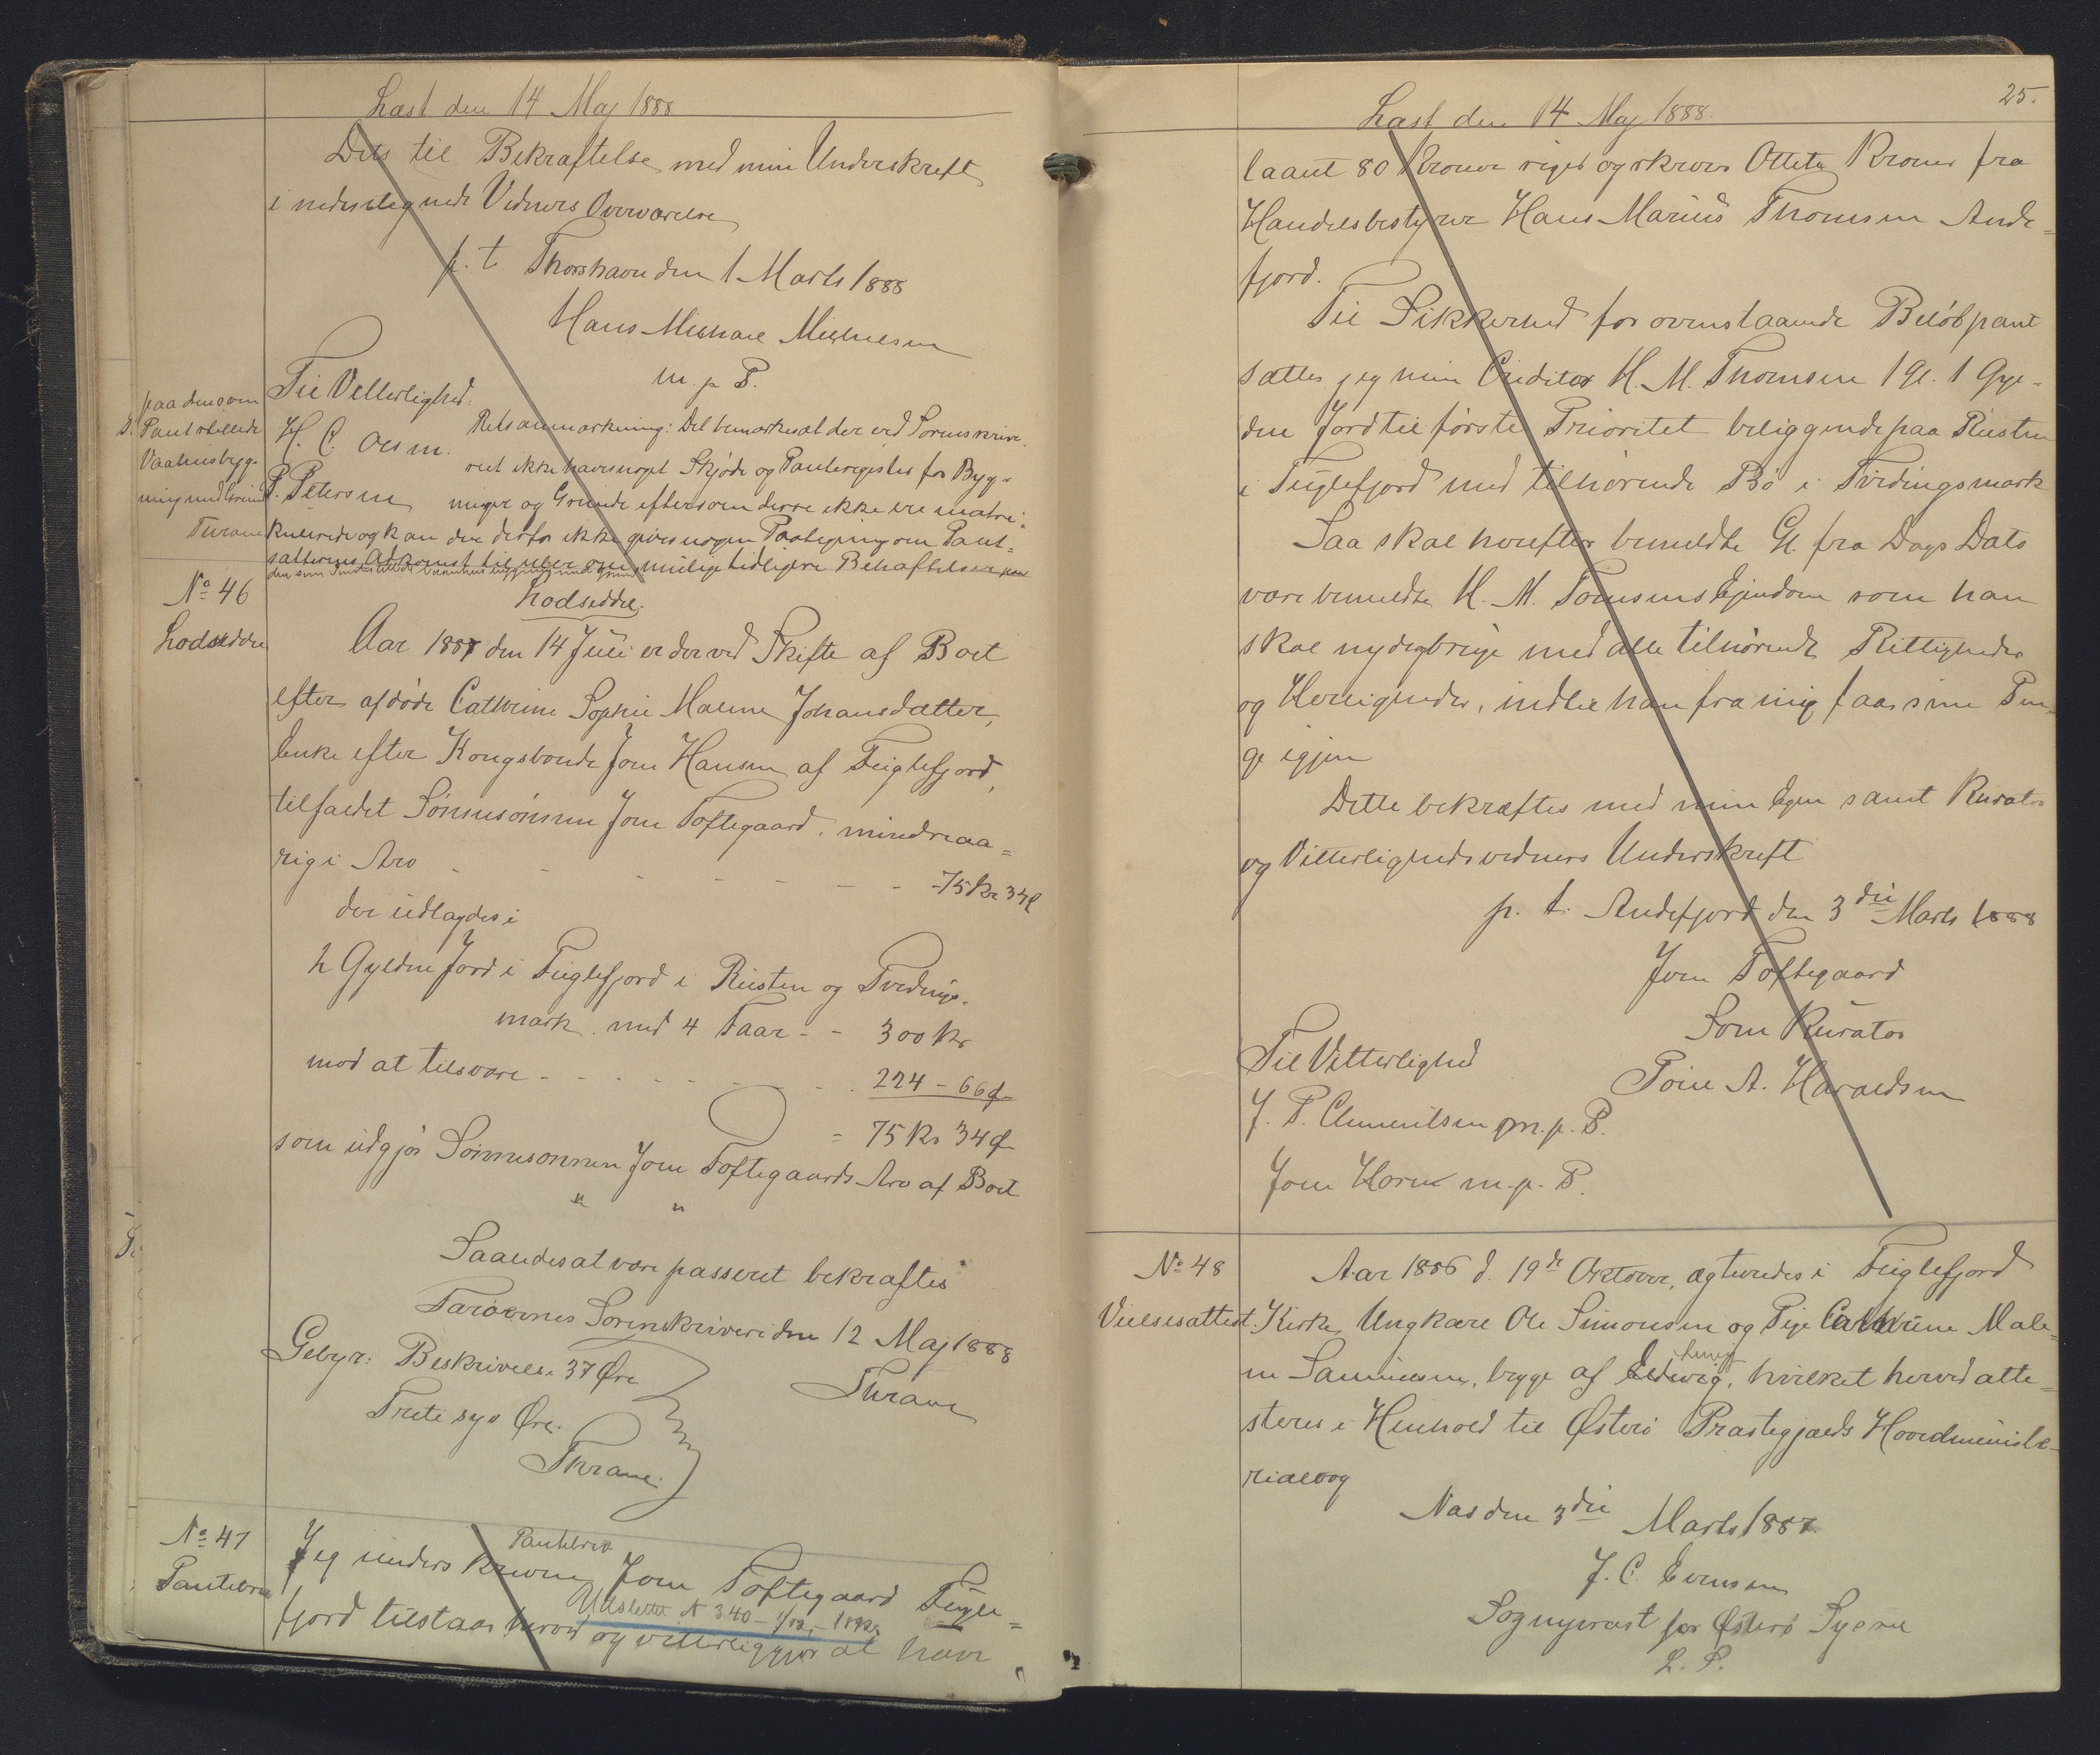 Læst den 14 Maj 1888
Dets til Bekræftelse med min Underskrift
i nedentegnede Vidners Overværelse
p. t. Thorshavn den 1 Marts 1888
Hans Michael Michelsen
m. p. P.
Til Vitterlighed:
H. C. Olsen.
P. Petersen
Retsanmærkning: Det bemærkes at der ved Sorenskrive-
riet ikke haves noget Skjøde og Panteregister for Byg-
ninger og Grunde eftersom disse ikke ere matri-
kulerede og kan der derfor ikke gives nogen Paategning om Pant-
sætterens Adkomst til eller om mulige tidligere Behæftelser paa
den som Pant stillede Vaanhus bygning med Grund
paa den som
s. Pant stillede
Vaahusbyg-
ning med Grund
Thrane
No 46
Lodseddel
Lodseddel.
Aar 1887 den 14 Juli er der ved Skifte af Boet
efter afdøde Cathrine Sophie Malene Johansdatter,
Enke efter Kongsbonde Joen Hansen af Fuglefjord,
tilfaldet Sönnesönnen Joen Toftegaard, mindreaa=
rig i Arv - - - - - - 75 Kr 34 Ø
der udlagdes i
2 Gylden Jord i Fuglefjord i Risten og Tvedings-
mark, med 4 Faar - - 300 Kr
mod at tilsvare - - - - - - 224 - 66 Ø
= 75 Kr 34 Ø
som udgjör Sönnesönnen Joen Toftegaards Arv af Boet
" "
Saaledes at være passeret bekræftes
Færøernes Sorenskriveri den 12 Maj 1888
Thrane
Gebyr: Beskrivelse 37 Øre
Tretisyv Øre.
Thrane.
No 47
Pantebrev
Pantebrev
Jeg underskrevne Joen Toftegaard Fugle=
fjord tilstaar herved og vitterliggjør at have
Udslettet N 340 - 1/12 - 1892.
25.
Læst den 14 Maj 1888.
laant 80 Kroner siger og skriver Otteti Kroner fra
Handelsbestyrer Hans Marius Thomsen Ande=
fjord.
Til Sikkerhed for ovenstaaende Beløb pant
sætter jeg min Creditor H. M. Thomsen 1 Gl. 1 Gyl-
den Jord til første Prioritet beliggende paa Risten
i Fuglefjord med tilhörende Bö i Tvedingsmark
Saa skal herefter bemeldte Gl. fra Dags Dato
være bemeldte H. M. Tomsens Ejendom som han
skal nyde og bruge med alle tilhörende Rettigheder
og Herligheder, indtil han fra mig faar sine Pen-
ge igjen
Dette bekræftes med min Egen samt Kurator
og Vitterlighedsvidners Underskrift
p. t. Andefjord den 3die Marts 1888
Joen Toftegaard
Som Kurator
Poul A. Haraldsen
Til Vitterlighed
J. P. Clementsen m. p. P.
Joen Horn m. p. P.
No 48
Vielsesattest.
Aar 1886 d. 19de Oktober, ægteviedes i Fuglefjord
Kirke, Ungkarl Ole Simonsen og Pige Cathrine Male-
ne Samuelsen, begge af Ledwig, hvilket herved atte=
steres i Henhold til Østerö Præstegjælds Hovedministe-
rialbog
Næs den 3die Marts 1887.
J. C. Evensen
Sognepræst for Østerö Syssel
L. S.